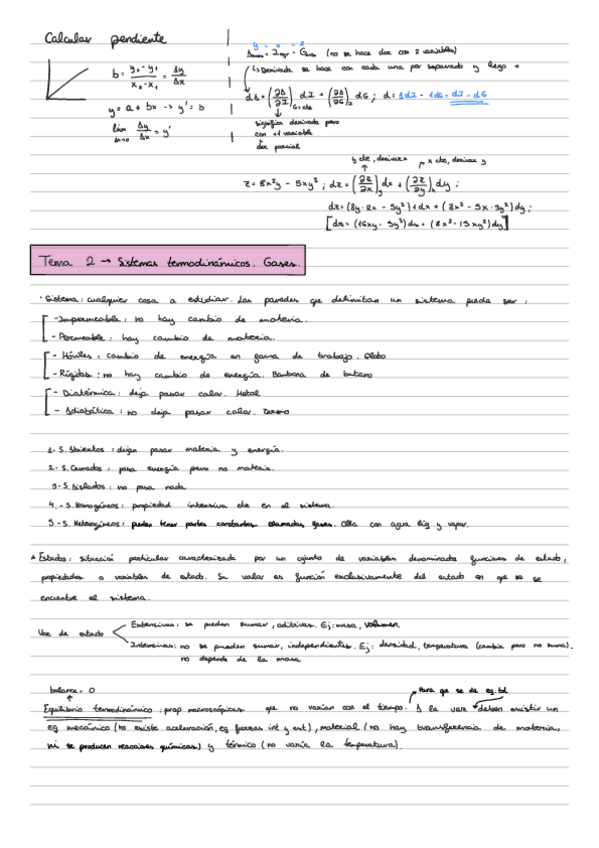 Calcular pendiente
b = y₂ - y₁ / x₂ - x₁ = Δy / Δx
y = a + bx -> y' = b
lím Δy / Δx = y'
y = x - z
(no se hace der con 2 variables)
↳ Derivada se hace con cada una por separado y luego +
dΔ = (∂Δ/∂I) dI + (∂Δ/∂G) dG ; d = 1dI - 1dG = dI - dG
G = cte
significa derivada pero
con +1 variable
der parcial
y cte, derivar x
x cte, derivar y
z = 8x²y - 5xy³ ; dz = (∂z/∂x)y dx + (∂z/∂y)x dy ;
dz = (8y · 2x - 5y³) · 1dx + (8x² - 5x · 3y²) dy ;
[dz = (16xy - 5y³) dx + (8x² - 15xy²) dy]
Tema 2 → Sistemas termodinámicos. Gases.
· Sistema: cualquier cosa a estudiar. Las paredes que delimitan un sistema puede ser:
- Impermeable: no hay cambio de materia.
- Permeable: hay cambio de materia.
- Móviles: cambio de energía en forma de trabajo. Globo
- Rígidas: no hay cambio de energía. Bombona de butano
- Diatérmica: deja pasar calor. Metal
- Adiabática: no deja pasar calor. Termo
1- S. Abiertos: dejan pasar materia y energía.
2- S. Cerrados: pasa energía pero no materia.
3- S. Aislados: no pasa nada
4.- S. Homogéneos: propiedad intensiva cte en el sistema.
5- S. Heterogéneos: pueden tener partes constantes llamadas fases. Olla con agua líq y vapor.
Estados: situación particular caracterizada por un cojunto de variables denominadas funciones de estado,
propiedades o variables de estado. Su valor es función exclusivamente del estado en que se se
encuentre el sistema.
Var de estado
Extensivas: se pueden sumar, aditivas. Ej: masa, volumen.
Intensivas: no se pueden sumar, independientes. Ej: densidad, temperatura (cambia pero no suma).
no depende de la masa
balance = 0
Para que se de eq. td
Equilibrio termodinámico: prop macroscópicas que no varían con el tiempo. A la vez deben existir un
eq mecánico (no existe aceleración, eq fuerzas int y ext), material (no hay transferencia de materia,
ni se producen reacciones químicas) y térmico (no varía la temperatura).